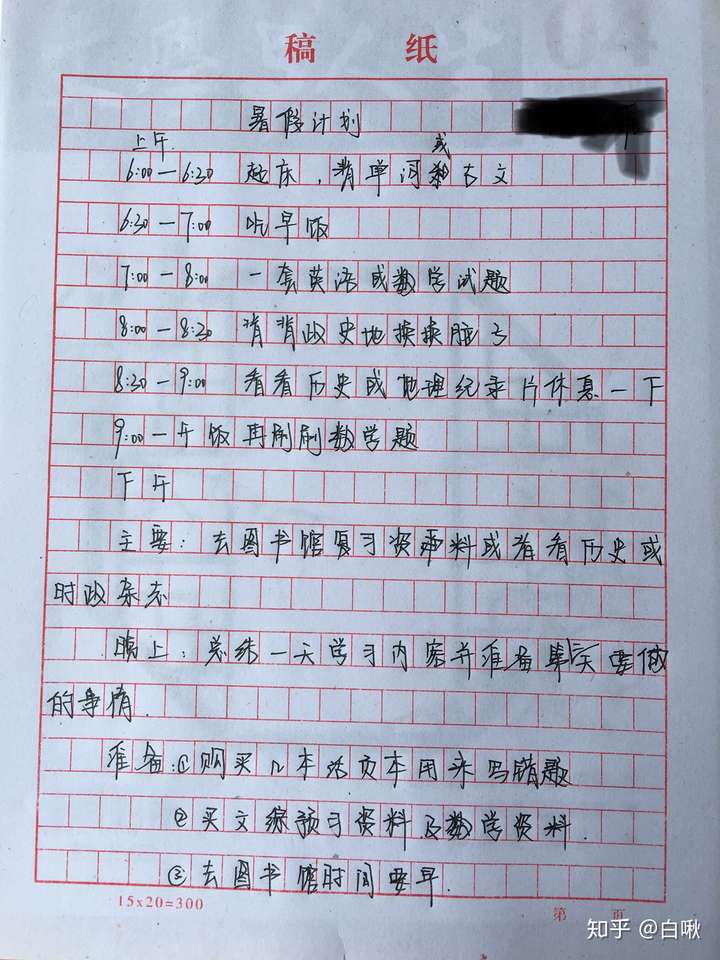 稿 纸
暑假计划
上午 或
6:00—6:30 起床,背单词和古文
6:30—7:00 吃早饭
7:00—8:00 一套英语或数学试题
8:00—8:30 背背政史地换换脑子
8:30—9:00 看看历史或地理纪录片休息一下
9:00—午饭再刷刷数学题
下午
主要:去图书馆复习资料或者看历史或
时政杂志
晚上:总结一天学习内容并准备第二天要做
的事情.
准备:①购买几本活页本用来写错题
②买文综预习资料及数学资料.
③去图书馆时间要早.
15x20=300
第 页
知乎 @白啾